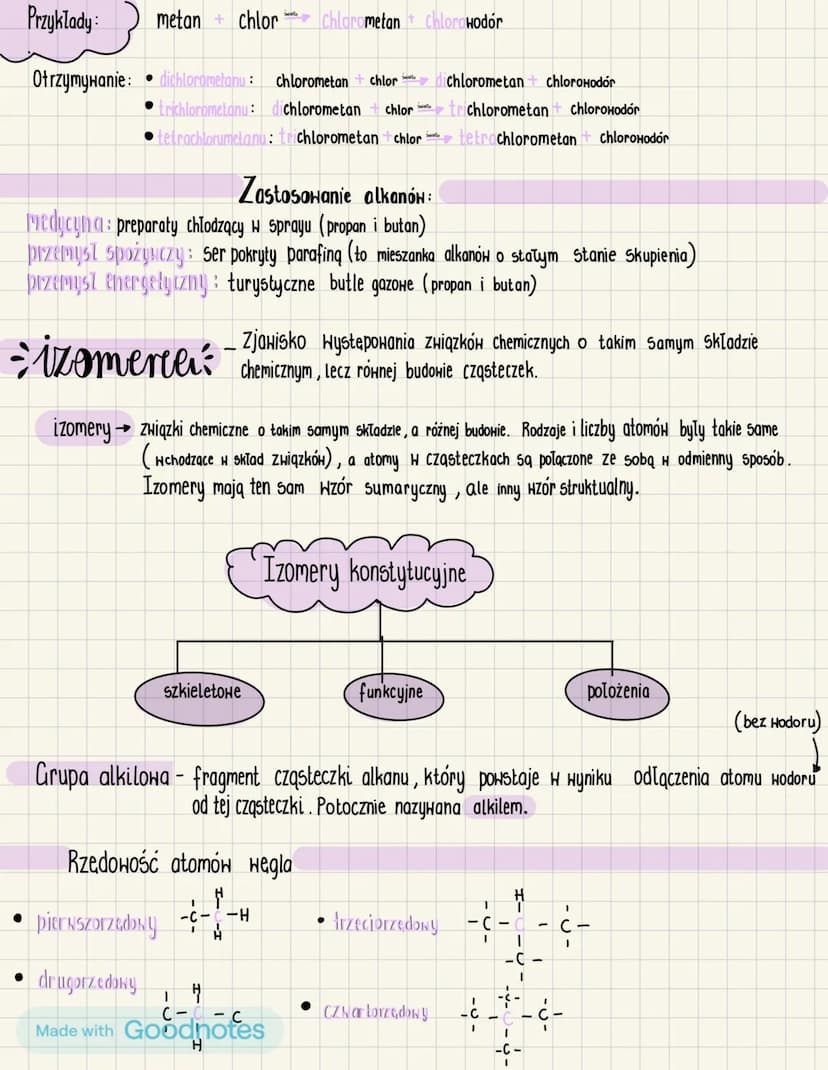 Przykłady: metan + chlor światło chlorometan + chlorowodór
Otrzymywanie: • dichlorometanu: chlorometan + chlor światło dichlorometan + chlorowodór
• trichlorometanu: dichlorometan + chlor światło trichlorometan + chlorowodór
• tetrachlorumetanu: trichlorometan + chlor światło tetrachlorometan + chlorowodór
Zastosowanie alkanów:
medycyna: preparaty chłodzący w sprayu (propan i butan)
przemysł spożywczy: ser pokryty parafiną (to mieszanka alkanów o stałym stanie skupienia)
przemysł energetyczny: turystyczne butle gazowe (propan i butan)
izomeria – Zjawisko występowania związków chemicznych o takim samym składzie
chemicznym, lecz równej budowie cząsteczek.
izomery → związki chemiczne o takim samym składzie, a różnej budowie. Rodzaje i liczby atomów były takie same
(wchodzące w skład związków), a atomy w cząsteczkach są połączone ze sobą w odmienny sposób.
Izomery mają ten sam wzór sumaryczny, ale inny wzór struktualny.
Izomery konstytucyjne
szkieletowe funkcyjne położenia
(bez wodoru)
Grupa alkilowa - fragment cząsteczki alkanu, który powstaje w wyniku odłączenia atomu wodoru
od tej cząsteczki. Potocznie nazywana alkilem.
Rzędowość atomów węgla
H
• pierwszorzędowy -C-C-H
H
H
• trzeciorzędowy -C-C-C-
-C-
• drugorzędowy
H
C-C-C
H
-C-
• czwartorzędowy -C-C-C-
-C-
Made with Goodnotes